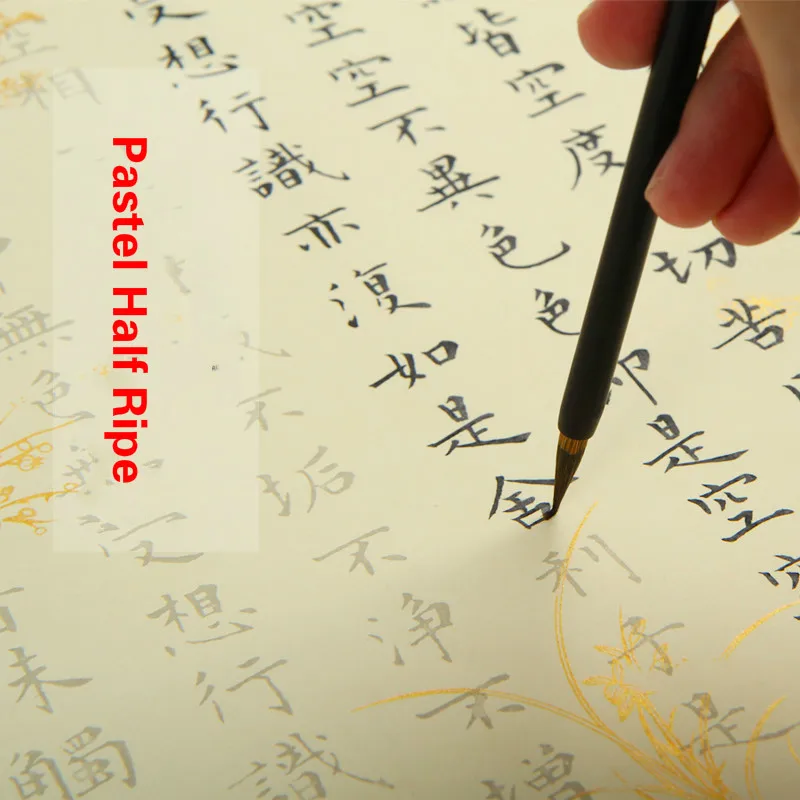 皆空度切苦
空空不異色色即是空空
受想行識亦復如是舍利子是
空相不垢不淨不增
無色受想行識
觸
Pastel Half Ripe